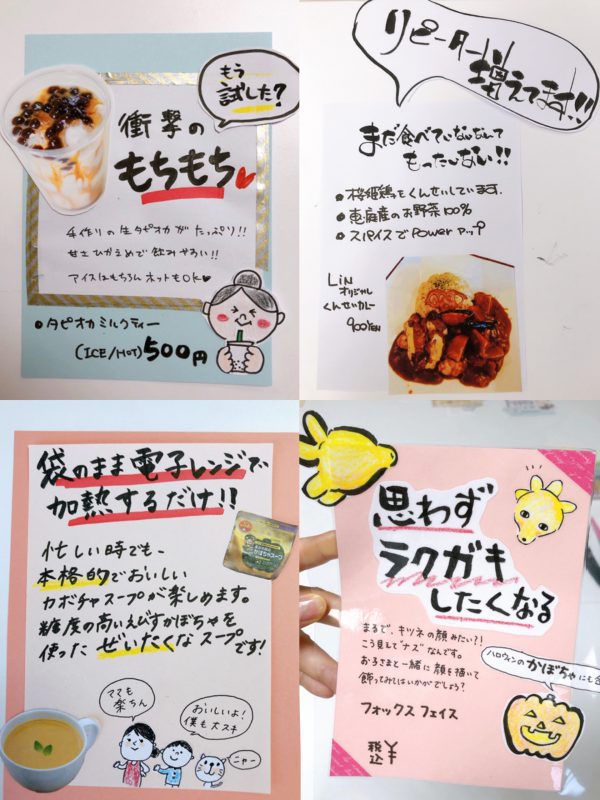 もう
試した?
衝撃の
もちもち
手作りの生タピオカがたっぷり!!
甘さひかえめで飲みやすい!!
アイスはもちろんホットもOK
タピオカミルクティー
(ICE/HOT) 500円
リピーター
増えてます!!
まだ食べていないなんて
もったいない!!
桜姫鶏をくんせいしています。
恵庭産のお野菜100%
スパイスでPOWERアップ
LiN
オリジナル
くんせいカレー
900YEN
袋のまま電子レンジで
加熱するだけ!!
忙しい時でも、
本格的でおいしい
カボチャスープが楽しめます。
糖度の高いえびすかぼちゃを
使ったぜいたくなスープです!
かぼちゃスープ
ママも
楽ちん
おいしいよ!
僕も大スキ
ニャー
思わず
ラクガキ
したくなる
まるで、キツネの顔みたい?!
こう見えて"ナス"なんです。
お子さまと一緒に顔を描いて
飾ってみてはいかがでしょう?
ハロウィンのかぼちゃにも
フォックスフェイス
税込
¥